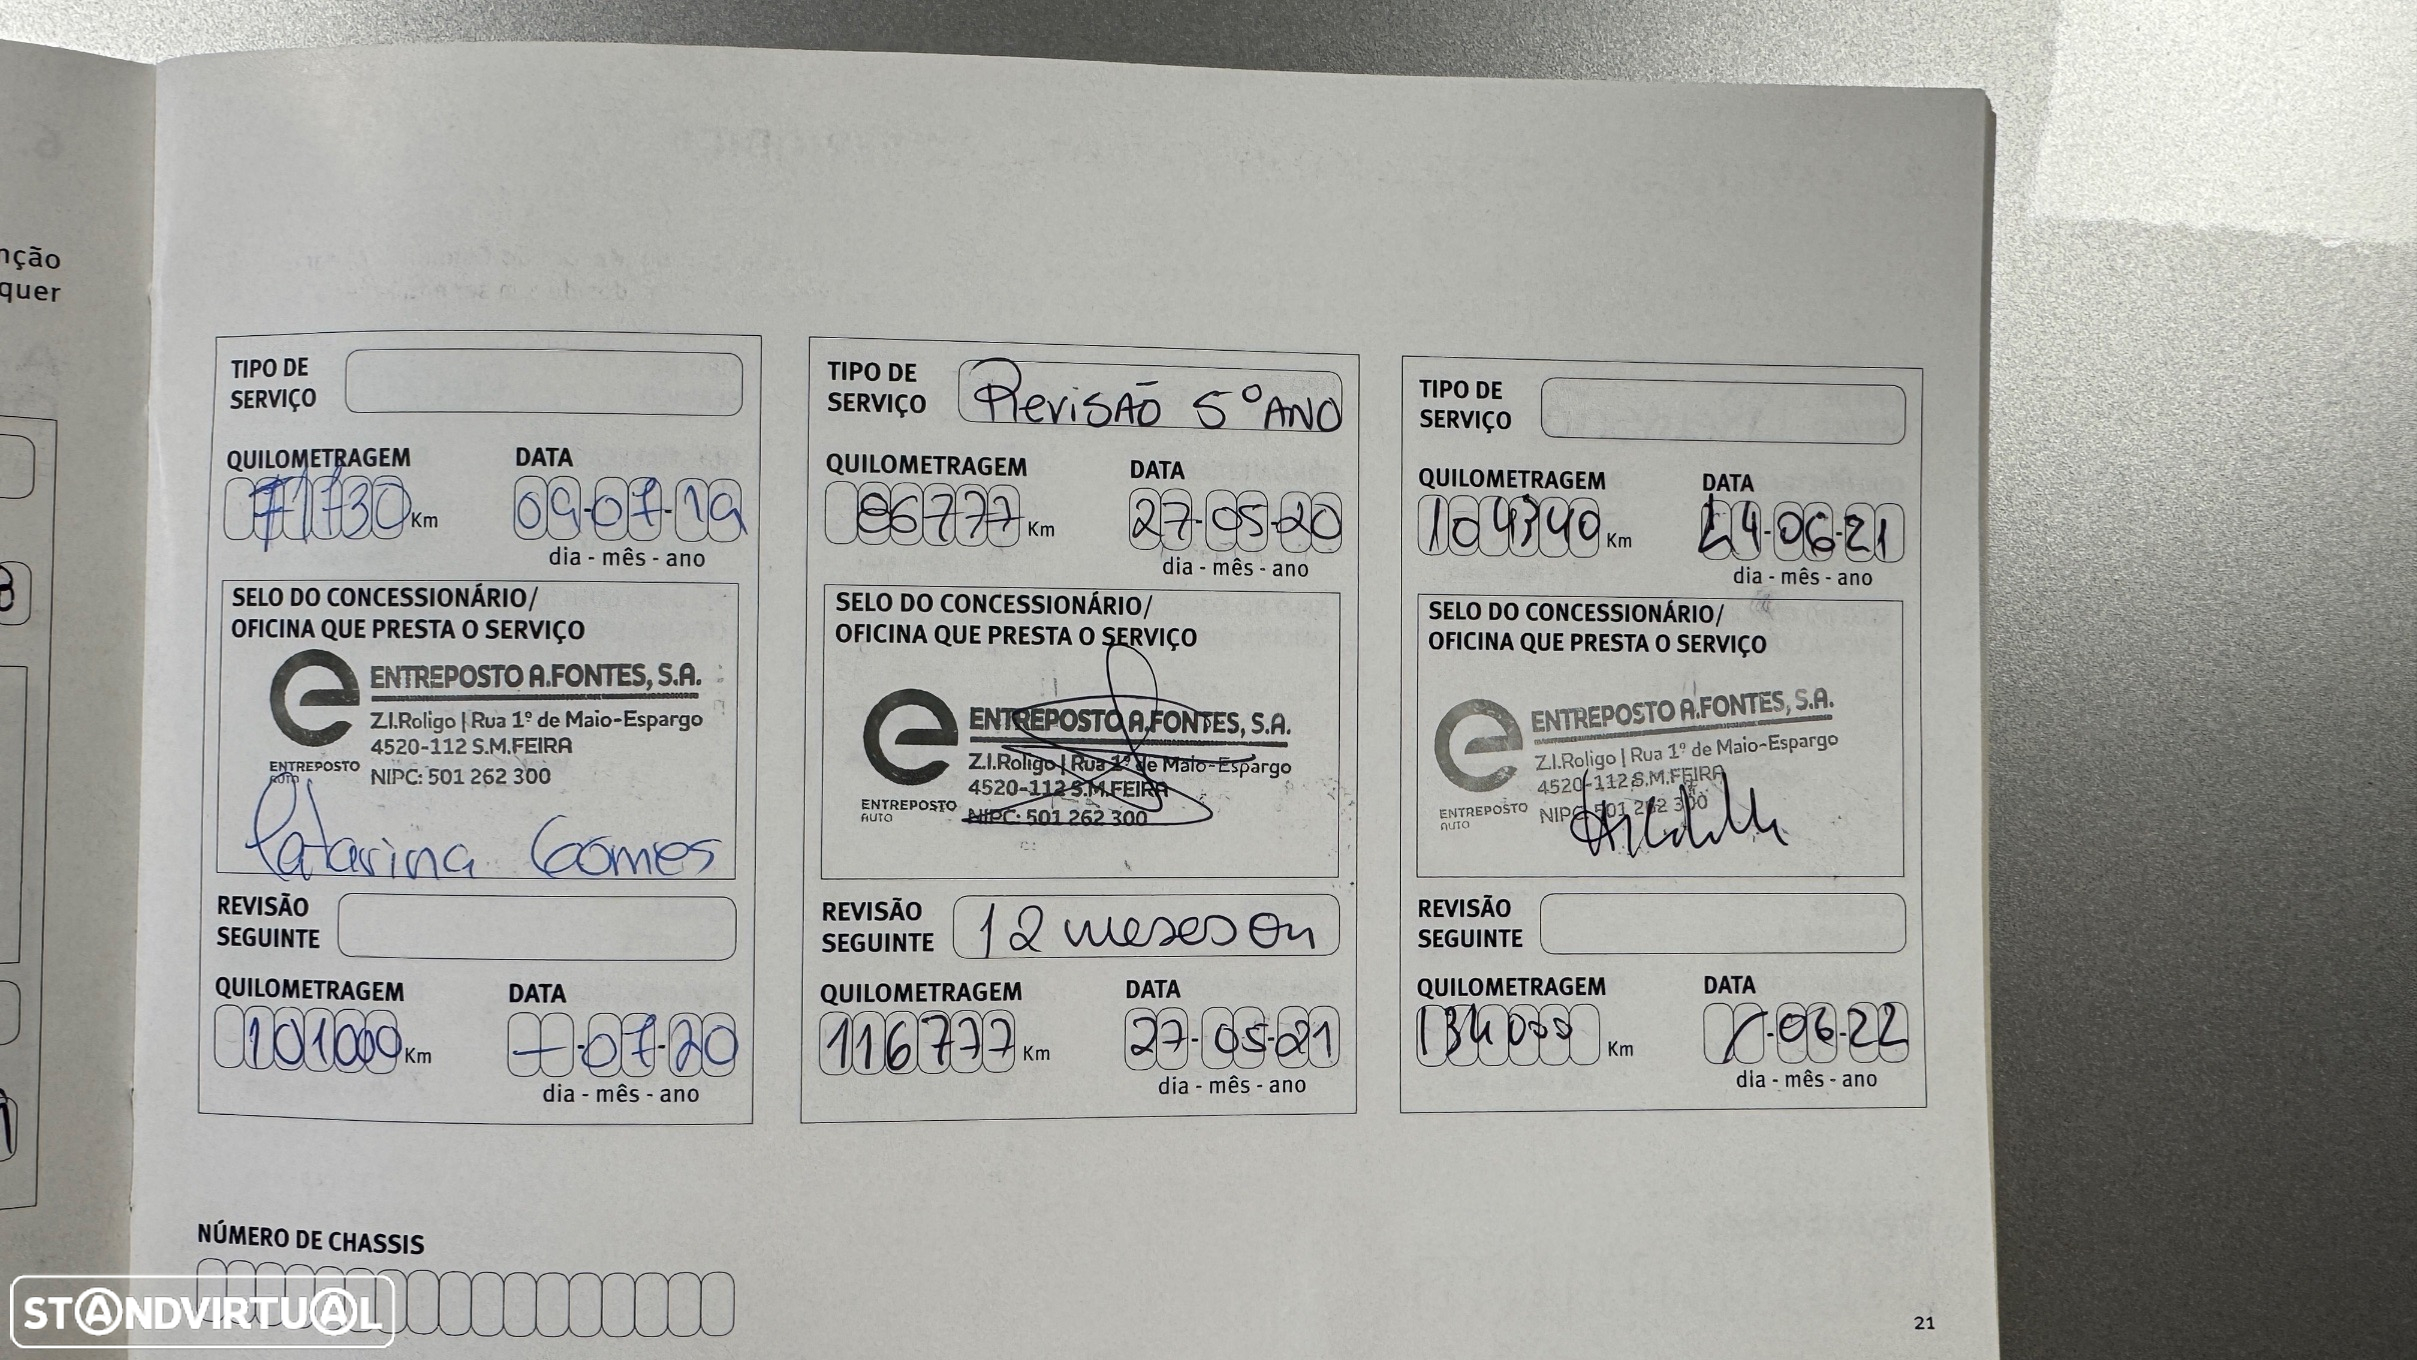 nção
quer
TIPO DE
SERVIÇO
QUILOMETRAGEM DATA
71730 Km 09-07-19
dia - mês - ano
SELO DO CONCESSIONÁRIO/
OFICINA QUE PRESTA O SERVIÇO
ENTREPOSTO A.FONTES, S.A.
Z.I.Roligo | Rua 1º de Maio-Espargo
4520-112 S.M.FEIRA
NIPC: 501 262 300
ENTREPOSTO
AUTO
Catarina Gomes
REVISÃO
SEGUINTE
QUILOMETRAGEM DATA
101000 Km -07-20
dia - mês - ano
TIPO DE
SERVIÇO Revisão 5º ANO
QUILOMETRAGEM DATA
86777 Km 27-05-20
dia - mês - ano
SELO DO CONCESSIONÁRIO/
OFICINA QUE PRESTA O SERVIÇO
ENTREPOSTO A.FONTES, S.A.
Z.I.Roligo | Rua 1º de Maio-Espargo
4520-112 S.M.FEIRA
NIPC: 501 262 300
ENTREPOSTO
AUTO
REVISÃO
SEGUINTE 12 meses ou
QUILOMETRAGEM DATA
116777 Km 27-05-21
dia - mês - ano
TIPO DE
SERVIÇO
QUILOMETRAGEM DATA
104340 Km 24-06-21
dia - mês - ano
SELO DO CONCESSIONÁRIO/
OFICINA QUE PRESTA O SERVIÇO
ENTREPOSTO A.FONTES, S.A.
Z.I.Roligo | Rua 1º de Maio-Espargo
4520-112 S.M.FEIRA
NIPC: 501 262 300
ENTREPOSTO
AUTO
REVISÃO
SEGUINTE
QUILOMETRAGEM DATA
134000 Km -06-22
dia - mês - ano
NÚMERO DE CHASSIS
STANDVIRTUAL
21